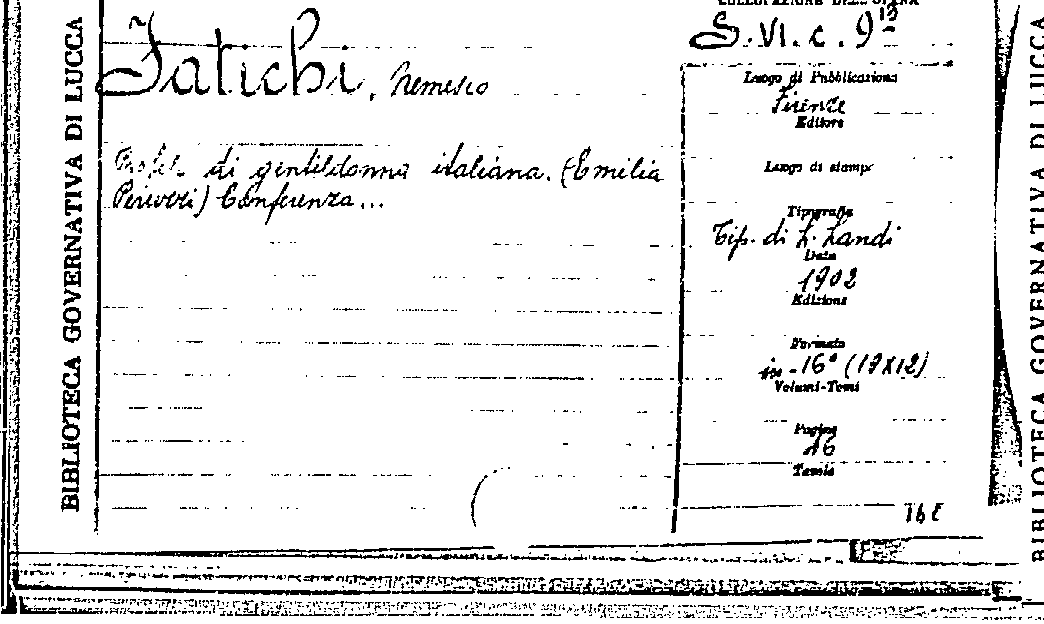 BIBLIOTECA GOVERNATIVA DI LUCCA
COLLOCAZIONE DELL'OPERA
S.VI.c.9¹³
Fatichi, Nemesio
Profilo di gentildonna italiana. (Emilia
Peruzzi) Conferenza...
Luogo di Pubblicazione
Firenze
Editore
Luogo di stampa
Tipografia
Tip. di L. Landi
Data
1902
Edizione
Formato
in-16° (19x12)
Volumi-Tomi
Pagine
16
Tavole
BIBLIOTECA GOVERNATIVA DI LUCCA